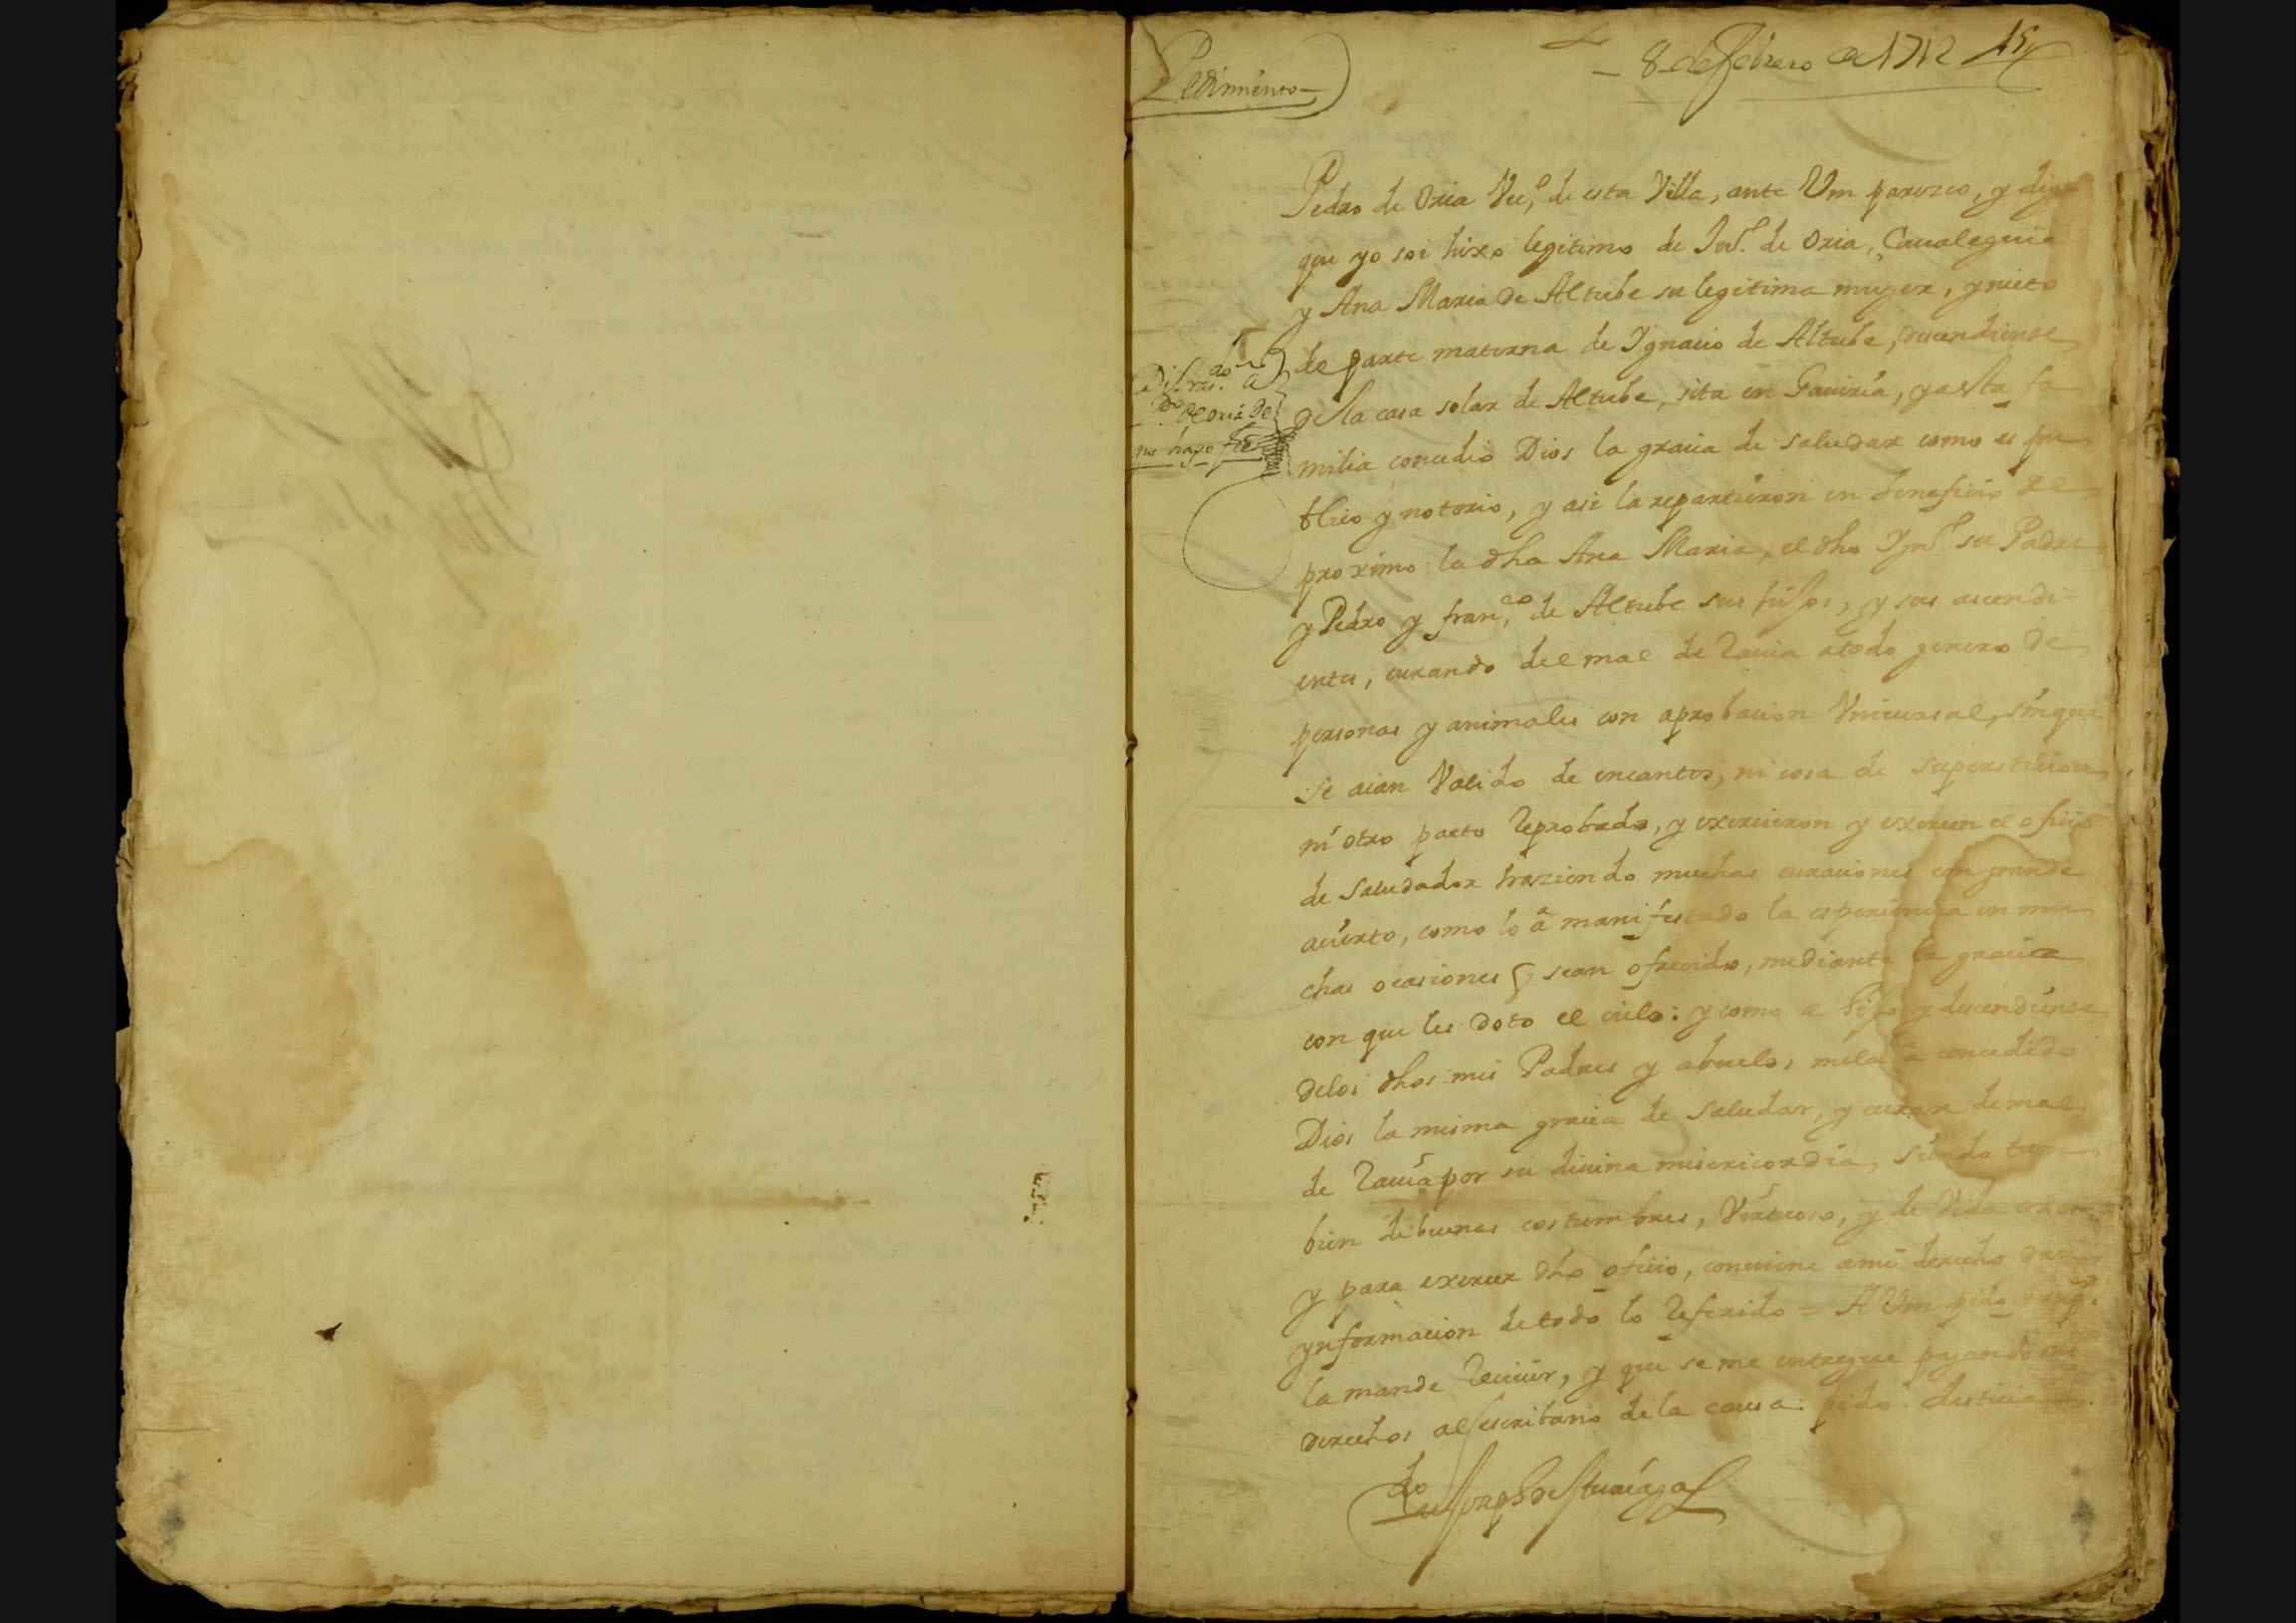 8 de febrero de 1712 15
Pedimento
Pedro de Oria Veç.º de esta Villa, ante Vm parezco, y digo
que yo soi hixo legitimo de Ju.º de Oria, Caualeguia
y Ana Maria de Altube su legitima muger, y nieto
de parte materna de Ygnacio de Altube, decendiente
de la casa solar de Altube, sita en Gauiria, y a esta fa
milia concedio Dios la gracia de saludar como es pu
blico y notorio, y asi la repartieron en beneficio del
proximo la dha Ana Maria, el dho Ygn.º su Padre
y Pedro y fran.co de Altube sus hijos, y sus acendi-
entes, curando del mal de Rauia a todo genero de
personas y animales con aprobacion Vniuersal, sin que
se aian Valido de encantos, ni cosa de supersticion
ni otro pacto Reprobado, y exercieron y exercen el oficio
de saludador haziendo muchas curaciones con grande
acierto, como lo a manifestado la esperiencia en mu
chas ocasiones q sean ofrecido, mediante la gracia
con que les doto el cielo: y como a hijo y decendiente
delos dhos mis Padres y abuelos, mela a concedido
Dios la misma gracia de saludar, y curar de mal
de Rauia por su diuina misericordia, siendo tam
bien de buenas costumbres, Virtuoso, y de Vida
y para exercer dho oficio, conuiene ami derecho dar
ynformacion de todo lo Referido = A Vm pido y sup.co
la mande Reciuir, y que se me entregue pagando sus
derechos al escribano de la causa: pido Justicia
do a
P.º de oria de
que hago fee